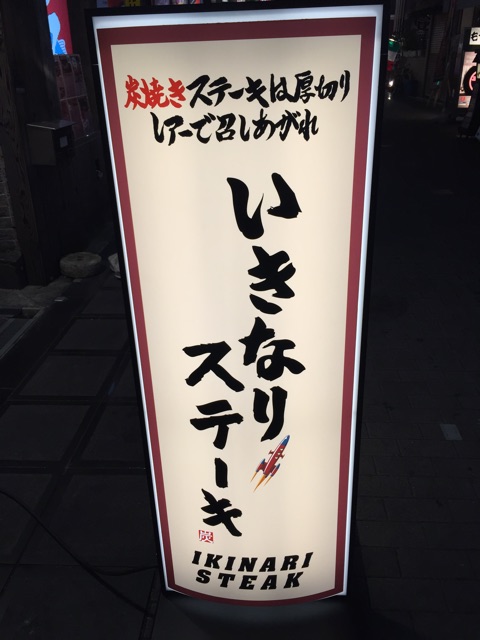 炭焼きステーキは厚切り
レアーで召しあがれ
いきなり
ステーキ
炭
IKINARI
STEAK